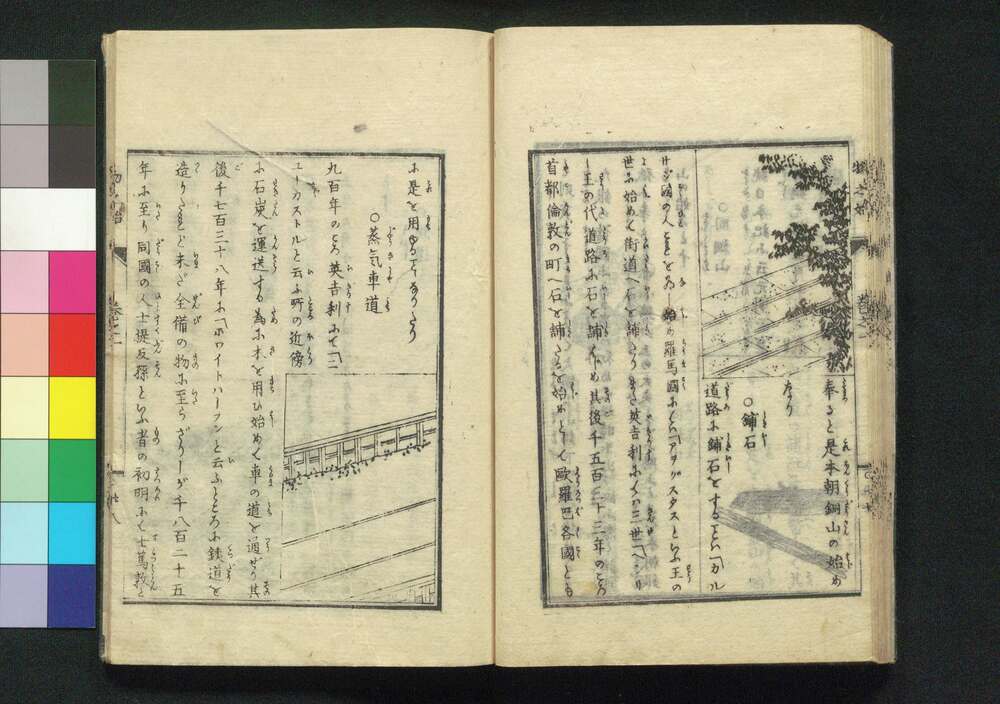 奉ると是本朝銅山の始め
なり
○鋪石
道路に鋪石をすることハ「カル
サゴ國の人をもとゐし始め羅馬國にてハ「アウグスタスといふ王の
世に始めて街道へ石を鋪たりまた英吉利にてハ三世「ヘンリ
ー王の代道路に石を鋪しめ其後千五百三十三年のころ
首都倫敦の町へ石を鋪たるを始めとして歐羅巴各國とも
に是を用ゆることなりたり
○蒸氣車道
九百年のころ英吉利にて「ニ
ユーカストルと云ふ所の近傍
に石炭を運送する為に木を用ひ始めて車の道を通ぜり其
後千七百三十八年に「ホワイトハーフンと云ふところに鉄道を
造りたれども未だ全備の物に至らざりしが千八百二十五
年に至り同國の人士提反孫といふ者の初明にて士篤敦と